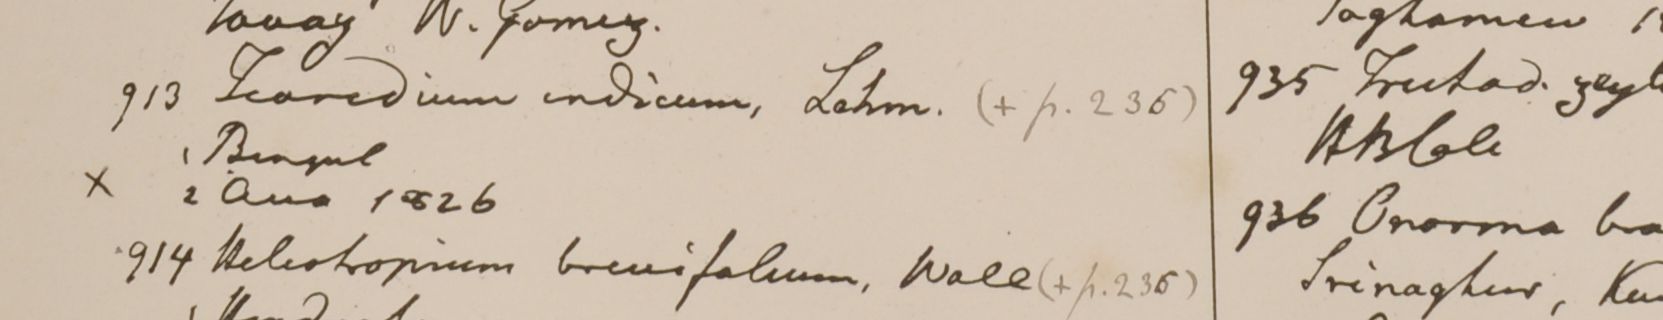 Tavay W. Gomez.
913 Tiaridium indicum, Lehm. (+ p. 236)
1 Bengal
× 2 Ava 1826
914 Heliotropium brevifolium, Wall (+ p. 236)
935 Trichod. zeyl
HBC
936 Onosma bra
Srinaghur, Ku